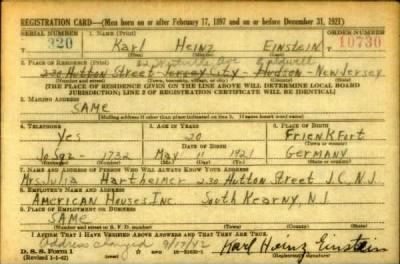 REGISTRATION CARD—(Men born on or after February 17, 1897 and on or before December 31, 1921)
SERIAL NUMBER 1. NAME (Print) ORDER NUMBER
320 Karl Heinz Einstein 10730
(First) (Middle) (Last)
2. PLACE OF RESIDENCE (Print) Caldwell
230 Hutton Street Jersey City Hudson New Jersey
(Number and street) (Town, township, village, or city) (County) (State)
[THE PLACE OF RESIDENCE GIVEN ON THE LINE ABOVE WILL DETERMINE LOCAL BOARD
JURISDICTION; LINE 2 OF REGISTRATION CERTIFICATE WILL BE IDENTICAL]
3. MAILING ADDRESS
SAME
[Mailing address if other than place indicated on line 2. If same insert word same]
4. TELEPHONE 5. AGE IN YEARS 6. PLACE OF BIRTH
Yes 20 Frienkfort
DATE OF BIRTH (Town or county)
Jo Sq 2 - 1732 May 11 1921 Germany
(Exchange) (Number) (Mo.) (Day) (Yr.) (State or country)
7. NAME AND ADDRESS OF PERSON WHO WILL ALWAYS KNOW YOUR ADDRESS
Mrs Julia Hartheimer 230 Hutton Street J.C. N.J.
8. EMPLOYER'S NAME AND ADDRESS
American Houses Inc. South Kearny, N.J.
9. PLACE OF EMPLOYMENT OR BUSINESS
SAME
(Number and street or R. F. D. number) (Town) (County) (State)
I AFFIRM THAT I HAVE VERIFIED ABOVE ANSWERS AND THAT THEY ARE TRUE.
Address changed 9/17/42 Karl Heinz Einstein
D. S. S. FORM 1
(Revised 1-1-42) (over) (Registrant's signature)